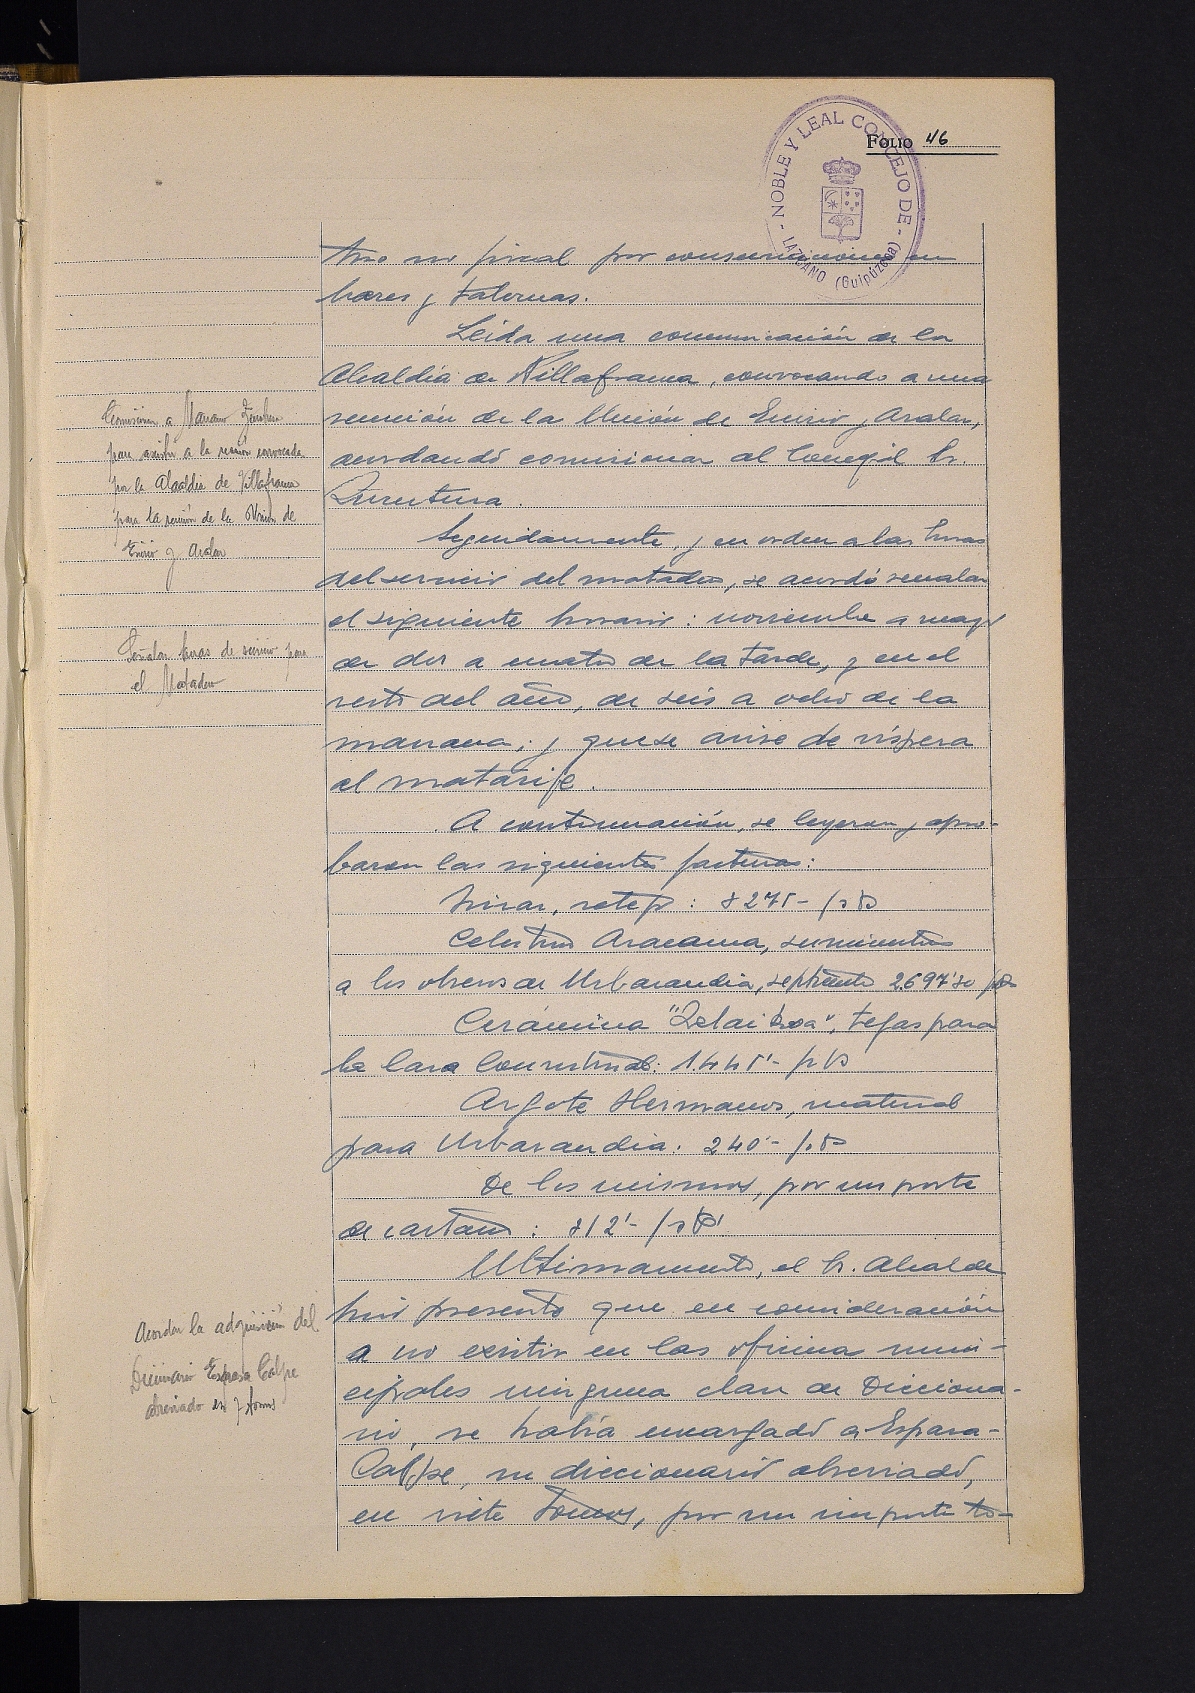 FOLIO 46
NOBLE Y LEAL CONCEJO DE
LAZCANO (Guipúzcoa)
por consumiciones en
bares y tabernas.
Leida una comunicación de la
Alcaldía de Villafranca, convocando a una
reunión de la Unión de Enirio y Aralar,
acordando comisionar al Concejal Sr.
Comisionar a
para asistir a la reunión convocada
por la Alcaldía de Villafranca
para la reunión de la Unión de
Enirio y Aralar
Seguidamente, y en orden a las horas
del servicio del matadero, se acordó señalar
el siguiente horario: noviembre a mayo
de dos a cuatro de la tarde, y en el
resto del año, de seis a ocho de la
mañana; y que se avise de víspera
al matarife.
Señalar horas de servicio para
el Matadero
A continuación, se leyeron y apro-
baron las siguientes facturas:
Celestino Aracama, suministros
a los obreros de Urbarandia, septiembre 2.697'50 pts
Cerámica "Zelaikoa", tejas para
la Casa Consistorial: 1.445'- pts
Argote Hermanos, material
para Urbarandia: 240'- pts
De los mismos, por un porte
de
Ultimamente, el Sr. Alcalde
hizo presente que en consideración
a no existir en las oficinas muni-
cipales ninguna clase de Dicciona-
rio, se había encargado a Espasa-
Calpe, un diccionario abreviado,
en siete tomos, por un importe to-
Acordar la adquisición del
Diccionario Espasa Calpe
abreviado en 7 tomos